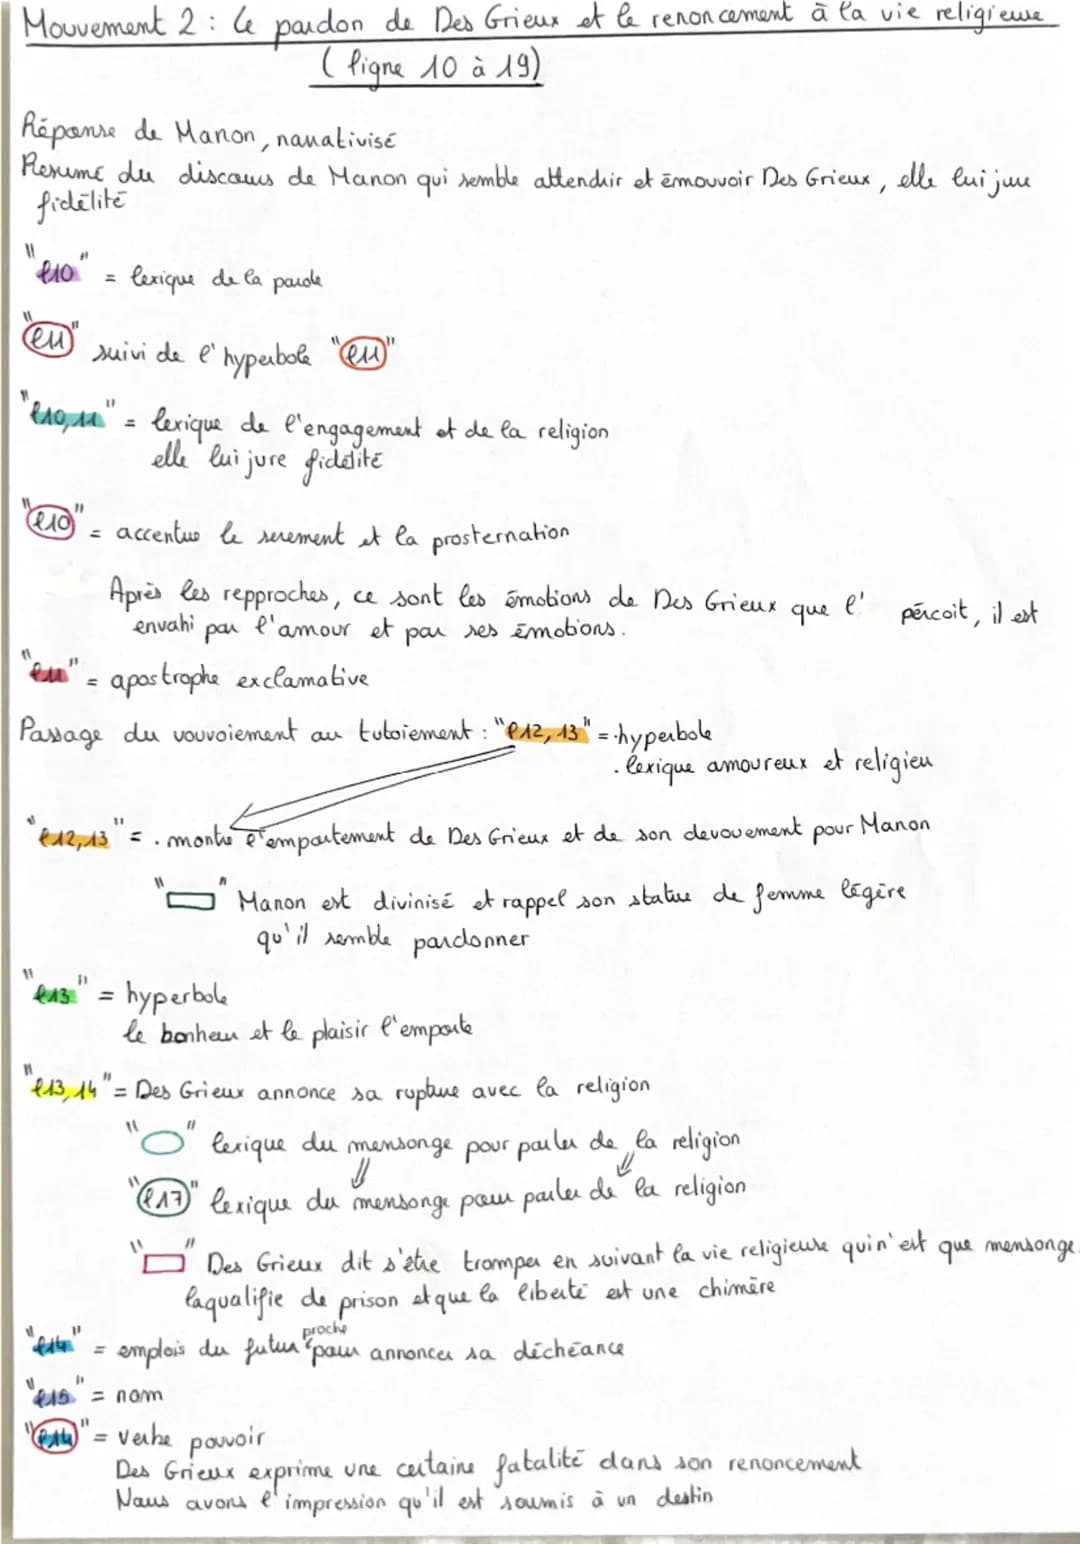 Mouvement 2 : le pardon de Des Grieux et le renoncement à la vie religieuse
( ligne 10 à 19)
Réponse de Manon, narrativisé
Resumé du discours de Manon qui semble attendrir et émouvoir Des Grieux, elle lui jure
fidélité
"l10" = lexique de la parole
"l11" suivi de l'hyperbole "l11"
"l10,11" = lexique de l'engagement et de la religion
elle lui jure fidélité
"l10" = accentue le serement et la prosternation
Après les repproches, ce sont les émotions de Des Grieux que l' pércoit, il est
envahi par l'amour et par ses émotions.
"l11" = apostrophe exclamative
Passage du vouvoiement au tutoiement : "l12, 13" = · hyperbole
. lexique amoureux et religieu
"l12,13" = . montre l'emportement de Des Grieux et de son devouement pour Manon
" " Manon est divinisé et rappel son statue de femme légère
qu'il semble pardonner
"l13" = hyperbole
le bonheur et le plaisir l'emporte
"l13,14" = Des Grieux annonce sa rupture avec la religion
" " lexique du mensonge pour parler de la religion
"l17" lexique du mensonge pour parler de la religion
" " Des Grieux dit s'être tromper en suivant la vie religieuse qui n'est que mensonge.
laqualifie de prison et que la liberté est une chimère
"l14" = emplois du futur proche pour annoncer sa déchéance
"l15" = nom
"l14" = verbe pouvoir
Des Grieux exprime une certaine fatalité dans son renoncement
Nous avons l'impression qu'il est soumis à un destin